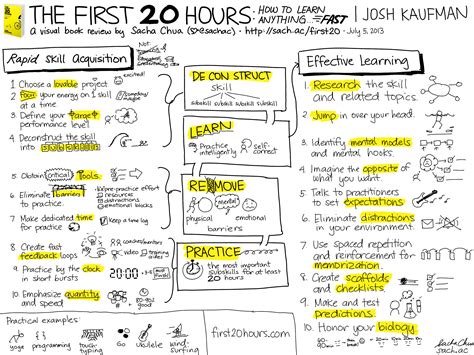 THE FIRST 20 HOURS: HOW TO LEARN ANYTHING... FAST | JOSH KAUFMAN
a visual book review by Sacha Chua (@sachac) • http://sach.ac/first20 • July 5, 2013
Rapid Skill Acquisition
Not:
1. Choose a lovable project
excited!
2. Focus your energy on 1 skill at a time
3. Define your target performance level
4. Deconstruct the skill into
5. Obtain critical Tools
6. Eliminate barriers
prep effort
resources
distractions
emotional blocks
7. Make dedicated time for practice
Keep a time log
8. Create fast feedback loops
coaches/mentors
video
training
9. Practice by the clock in short bursts
20:00
10. Emphasize quantity and speed
80-90% good
DECONSTRUCT
skill
subskill subskill subskill subskill
LEARN
Practice intelligently
Self-correct
REMOVE
physical
mental
emotional
barriers
PRACTICE
the most important subskills for at least 20 hours
Effective Learning
1. Research the skill and related topics.
2. Jump in over your head.
3. Identify mental models and mental hooks.
4. Imagine the opposite of what you want.
5. Talk to practitioners to set expectations
6. Eliminate distractions in your environment.
7. Use spaced repetition and reinforcement for memorization.
8. Create scaffolds and checklists
9. Make and test predictions.
10. Honor your biology.
Practical examples:
yoga
programming
touch-typing
Go
ukulele
wind-surfing
first20hours.com
Sacha Chua
sach.ac